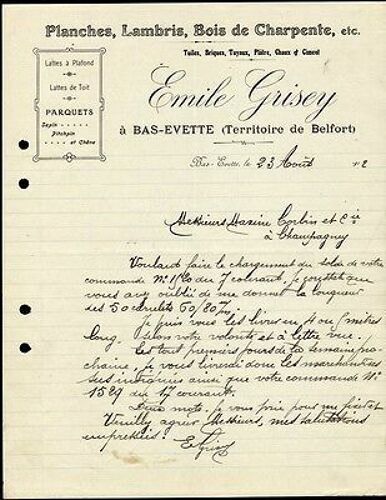 Planches, Lambris, Bois de Charpente, etc.
Tuiles, Briques, Tuyaux, Plâtre, Chaux & Ciment
Lattes à Plafond
Lattes de Toit
PARQUETS
Sapin
Pitchpin
et Chêne
Emile Grisey
à BAS-EVETTE (Territoire de Belfort)
Bas-Evette, le 23 Août 2
Messieurs Maxime Corbin et Cie
à Champagney
Voulant faire le chargement du solde de votre
commande N° 1/20 du 7 courant, je constate que
vous avez oublié de me donner la longueur
des 50 60/80
Je puis vous les livrer en 4 ou 5 mètres
long, selon votre volonté et à lettre vue.
Les tout premiers jours de la semaine pro
chaine, je vous livrerai donc les marchandises
ainsi que votre commande N°
1529 du 17 courant.
Deux mots, je vous prie pour me
Veuillez agréer Messieurs, mes salutations
empressées.
E Grisey